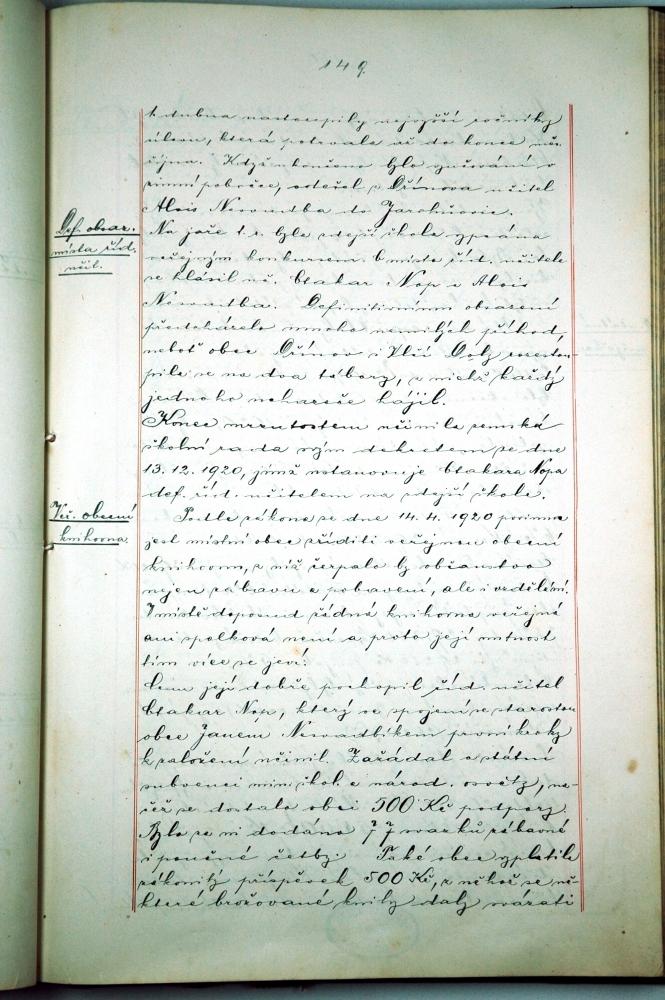 149.
1. dubna nastoupily nejvyšší ročníky
úlevu, která potrvala až do konce měs.
října. Když skončeno bylo vyučování v
zimní pobočce, odešel z Dřínova učitel
Alois Nesvadba do Jarohněvic.
Def. obsaz.
místa říd.
učit.
Na jaře t. r. bylo zdejší škole vypsáno
veřejným konkursem. O místo říd. učitele
se hlásil uč. Otakar Nop a Alois
Nesvadba. Definitivnímu obsazení
předcházelo mnoho nemilých příhod,
neboť obce Dřínov i Vlčí Doly rozstou-
pily se na dva tábory, z nichž každý
jednoho uchazeče hájil.
Konec mrzutostem učinila zemská
školní rada svým dekretem ze dne
13. 12. 1920, jímž ustanovuje Otakara Nopa
def. říd. učitelem na zdejší škole.
Veř. obecní
knihovna.
Podle zákona ze dne 14. 4. 1920 povinna
jest místní obec zříditi veřejnou obecní
knihovnu, z níž čerpalo by občanstvo
nejen zábavu a pobavení, ale i vzdělání.
V místě doposud řádná knihovna veřejná
ani spolková není a proto její nutnost
tím více se jeví.
Cenu její dobře pochopil říd. učitel
Otakar Nop, který ve spojení se starostou
obce Janem Nesvadbíkem první kroky
k založení učinil. Zažádal o státní
subvenci min. škol. a národ. osvěty, na-
čež se dostalo obci 500 Kč podpory.
Bylo za ni dodáno 77 svazků zábavné
i poučné četby. Také obec vyplatila
zákonitý příspěvek 500 Kč, z něhož se ně-
které brožované knihy daly svázati